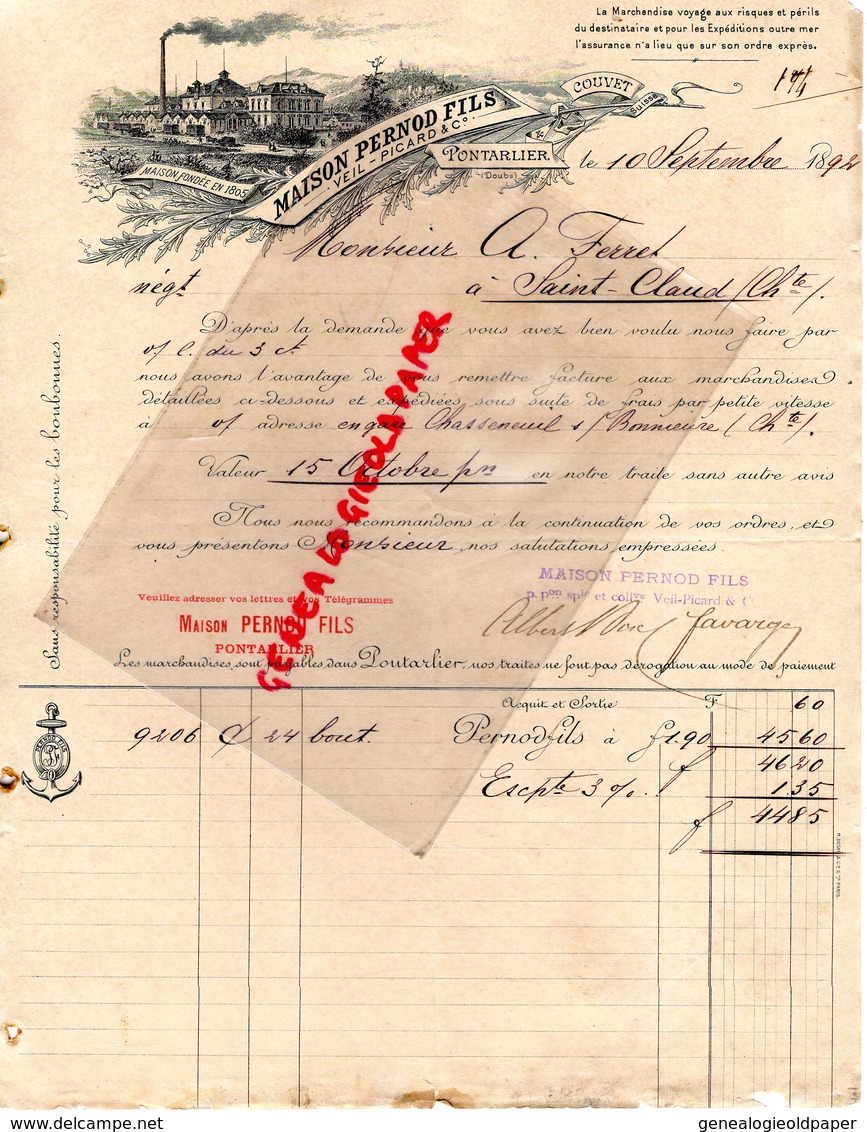 La Marchandise voyage aux risques et périls
du destinataire et pour les Expéditions outre mer
l'assurance n'a lieu que sur son ordre exprès.
COUVET
Suisse
MAISON PERNOD FILS
VEIL-PICARD & Cº
&
PONTARLIER
(Doubs)
MAISON FONDÉE EN 1805
le 10 Septembre 1892
Monsieur A. Ferret
négt à Saint-Claud (Chte).
D'après la demande que vous avez bien voulu nous faire par
v/ l. du 3 ct
nous avons l'avantage de vous remettre facture aux marchandises
détaillées ci-dessous et expédiées sous suite de frais par petite vitesse
à v/ adresse en gare Chasseneuil s/ Bonnieure (Chte).
Valeur 15 Octobre pn en notre traite sans autre avis
Nous nous recommandons à la continuation de vos ordres, et
vous présentons Monsieur, nos salutations empressées.
Sans responsabilité pour les bonbonnes.
MAISON PERNOD FILS
p. pon sple et collve Veil-Picard & C
Veuillez adresser vos lettres et vos Télégrammes
MAISON PERNOD FILS
PONTARLIER
Les marchandises sont payables dans Pontarlier, nos traites ne font pas dérogation au mode de paiement
Acquit et Sortie F 60
9206 24 bout. Pernod fils à f 1.90 45 60
f 46 20
Escpte 3 %. 1.35
f 44 85
PERNOD FILS
GENEA LA GIEOLA PAPER
genealogieoldpaper